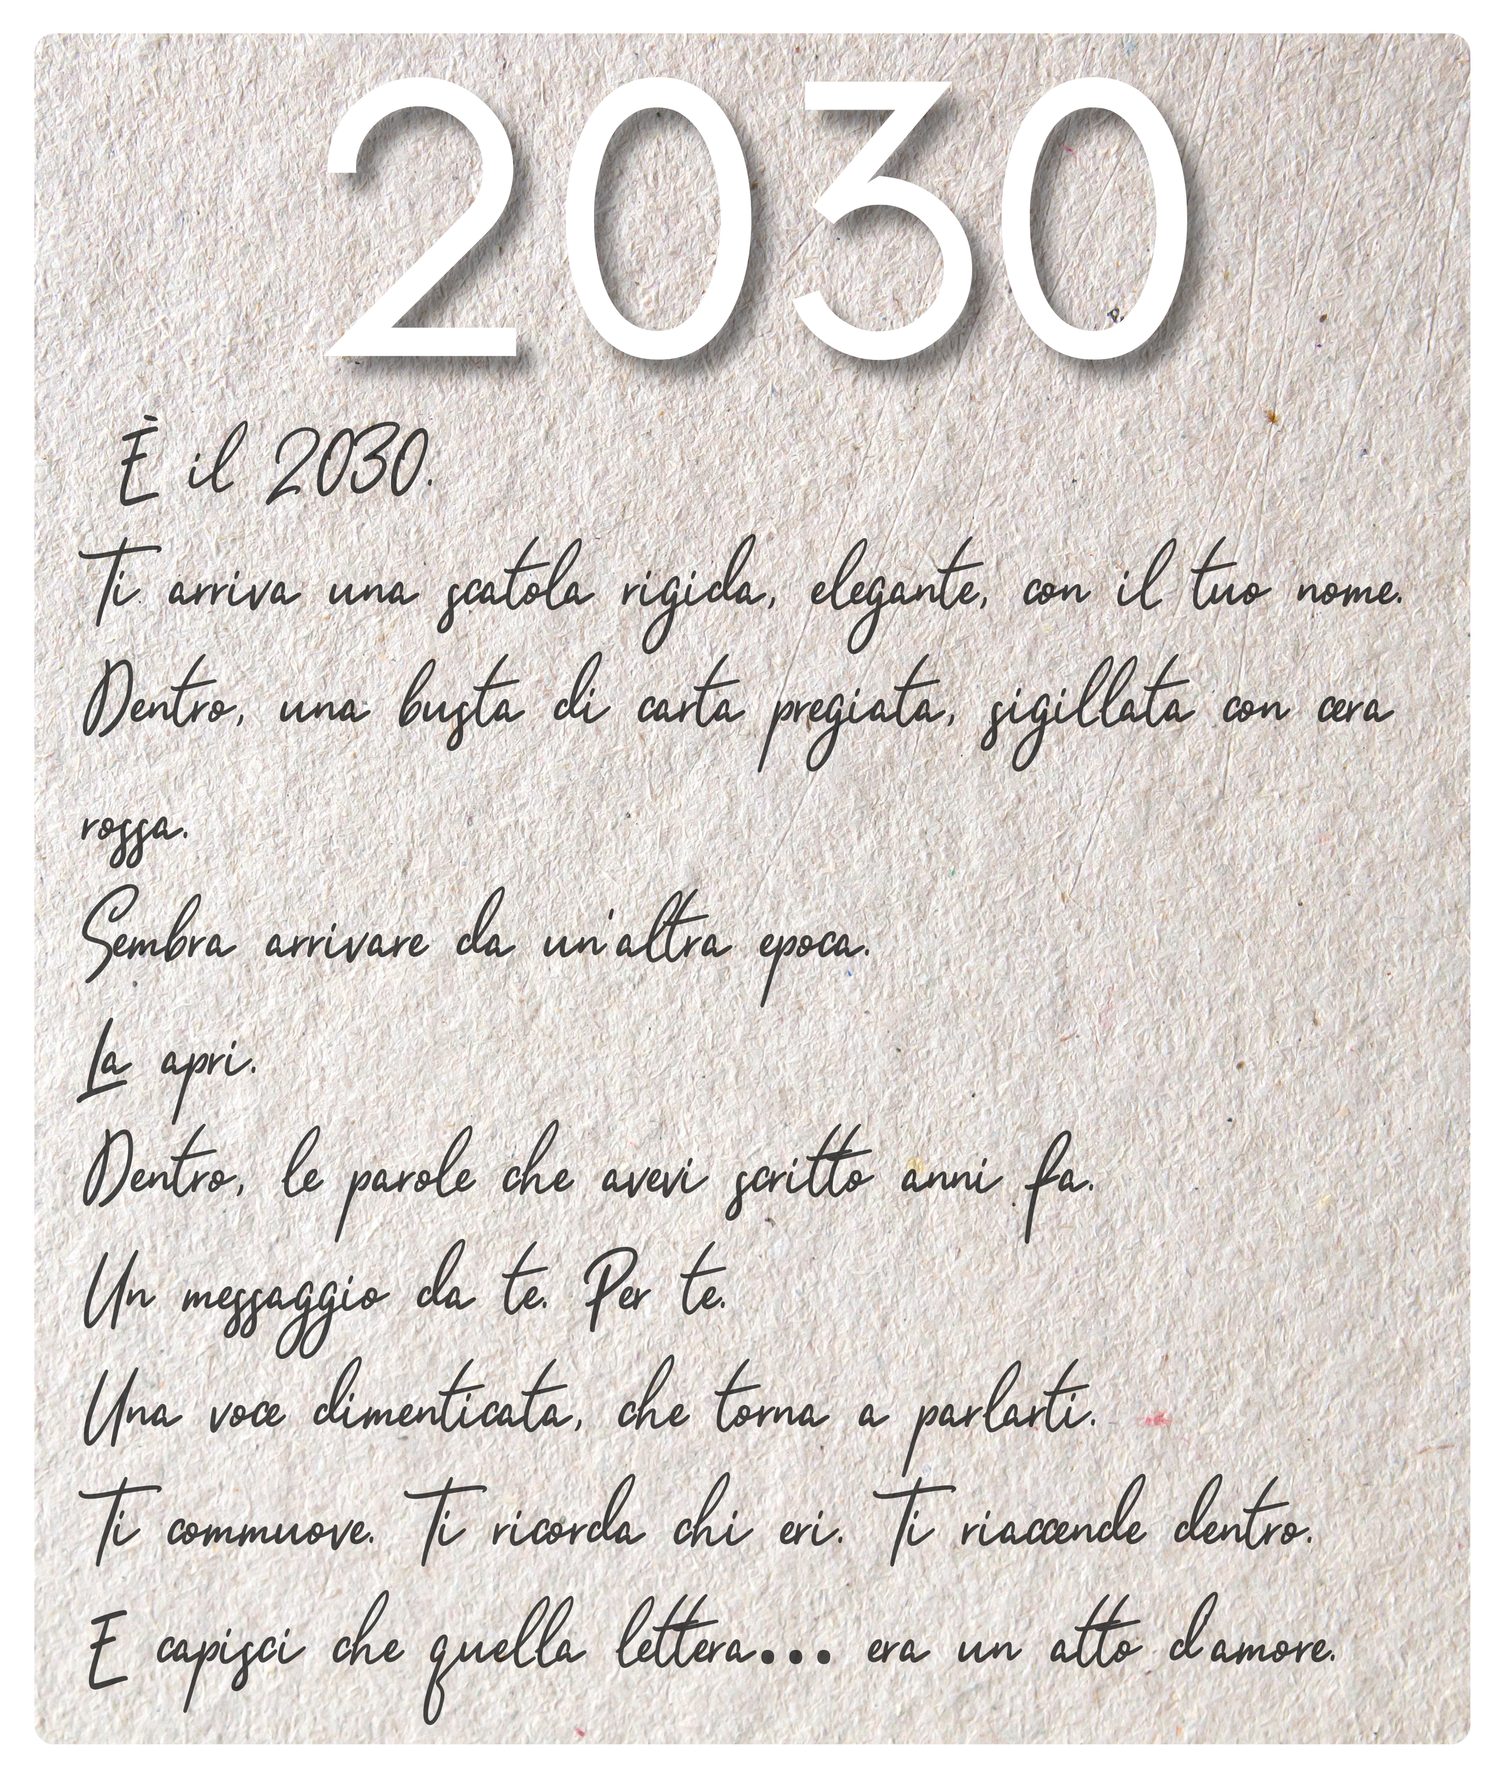 2030
È il 2030.
Ti arriva una scatola rigida, elegante, con il tuo nome.
Dentro, una busta di carta pregiata, sigillata con cera
rossa.
Sembra arrivare da un'altra epoca.
La apri.
Dentro, le parole che avevi scritto anni fa.
Un messaggio da te. Per te.
Una voce dimenticata, che torna a parlarti.
Ti commuove. Ti ricorda chi eri. Ti riaccende dentro.
E capisci che quella lettera... era un atto d'amore.